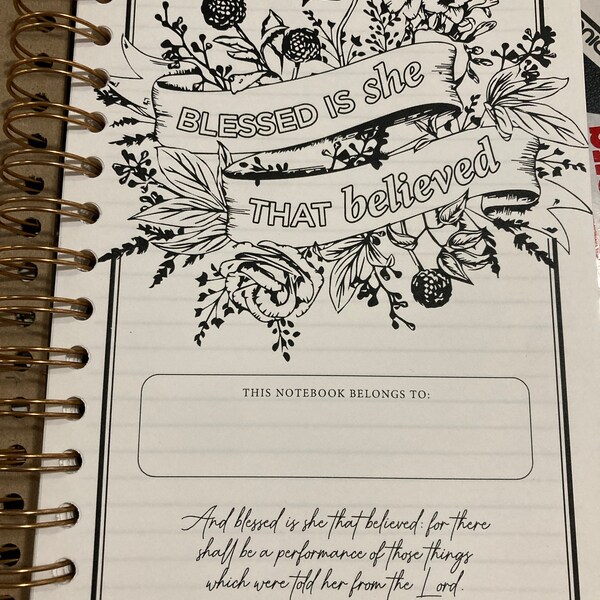 BLESSED IS she
THAT believed
THIS NOTEBOOK BELONGS TO:
And blessed is she that believed: for there
shall be a performance of those things
which were told her from the Lord.